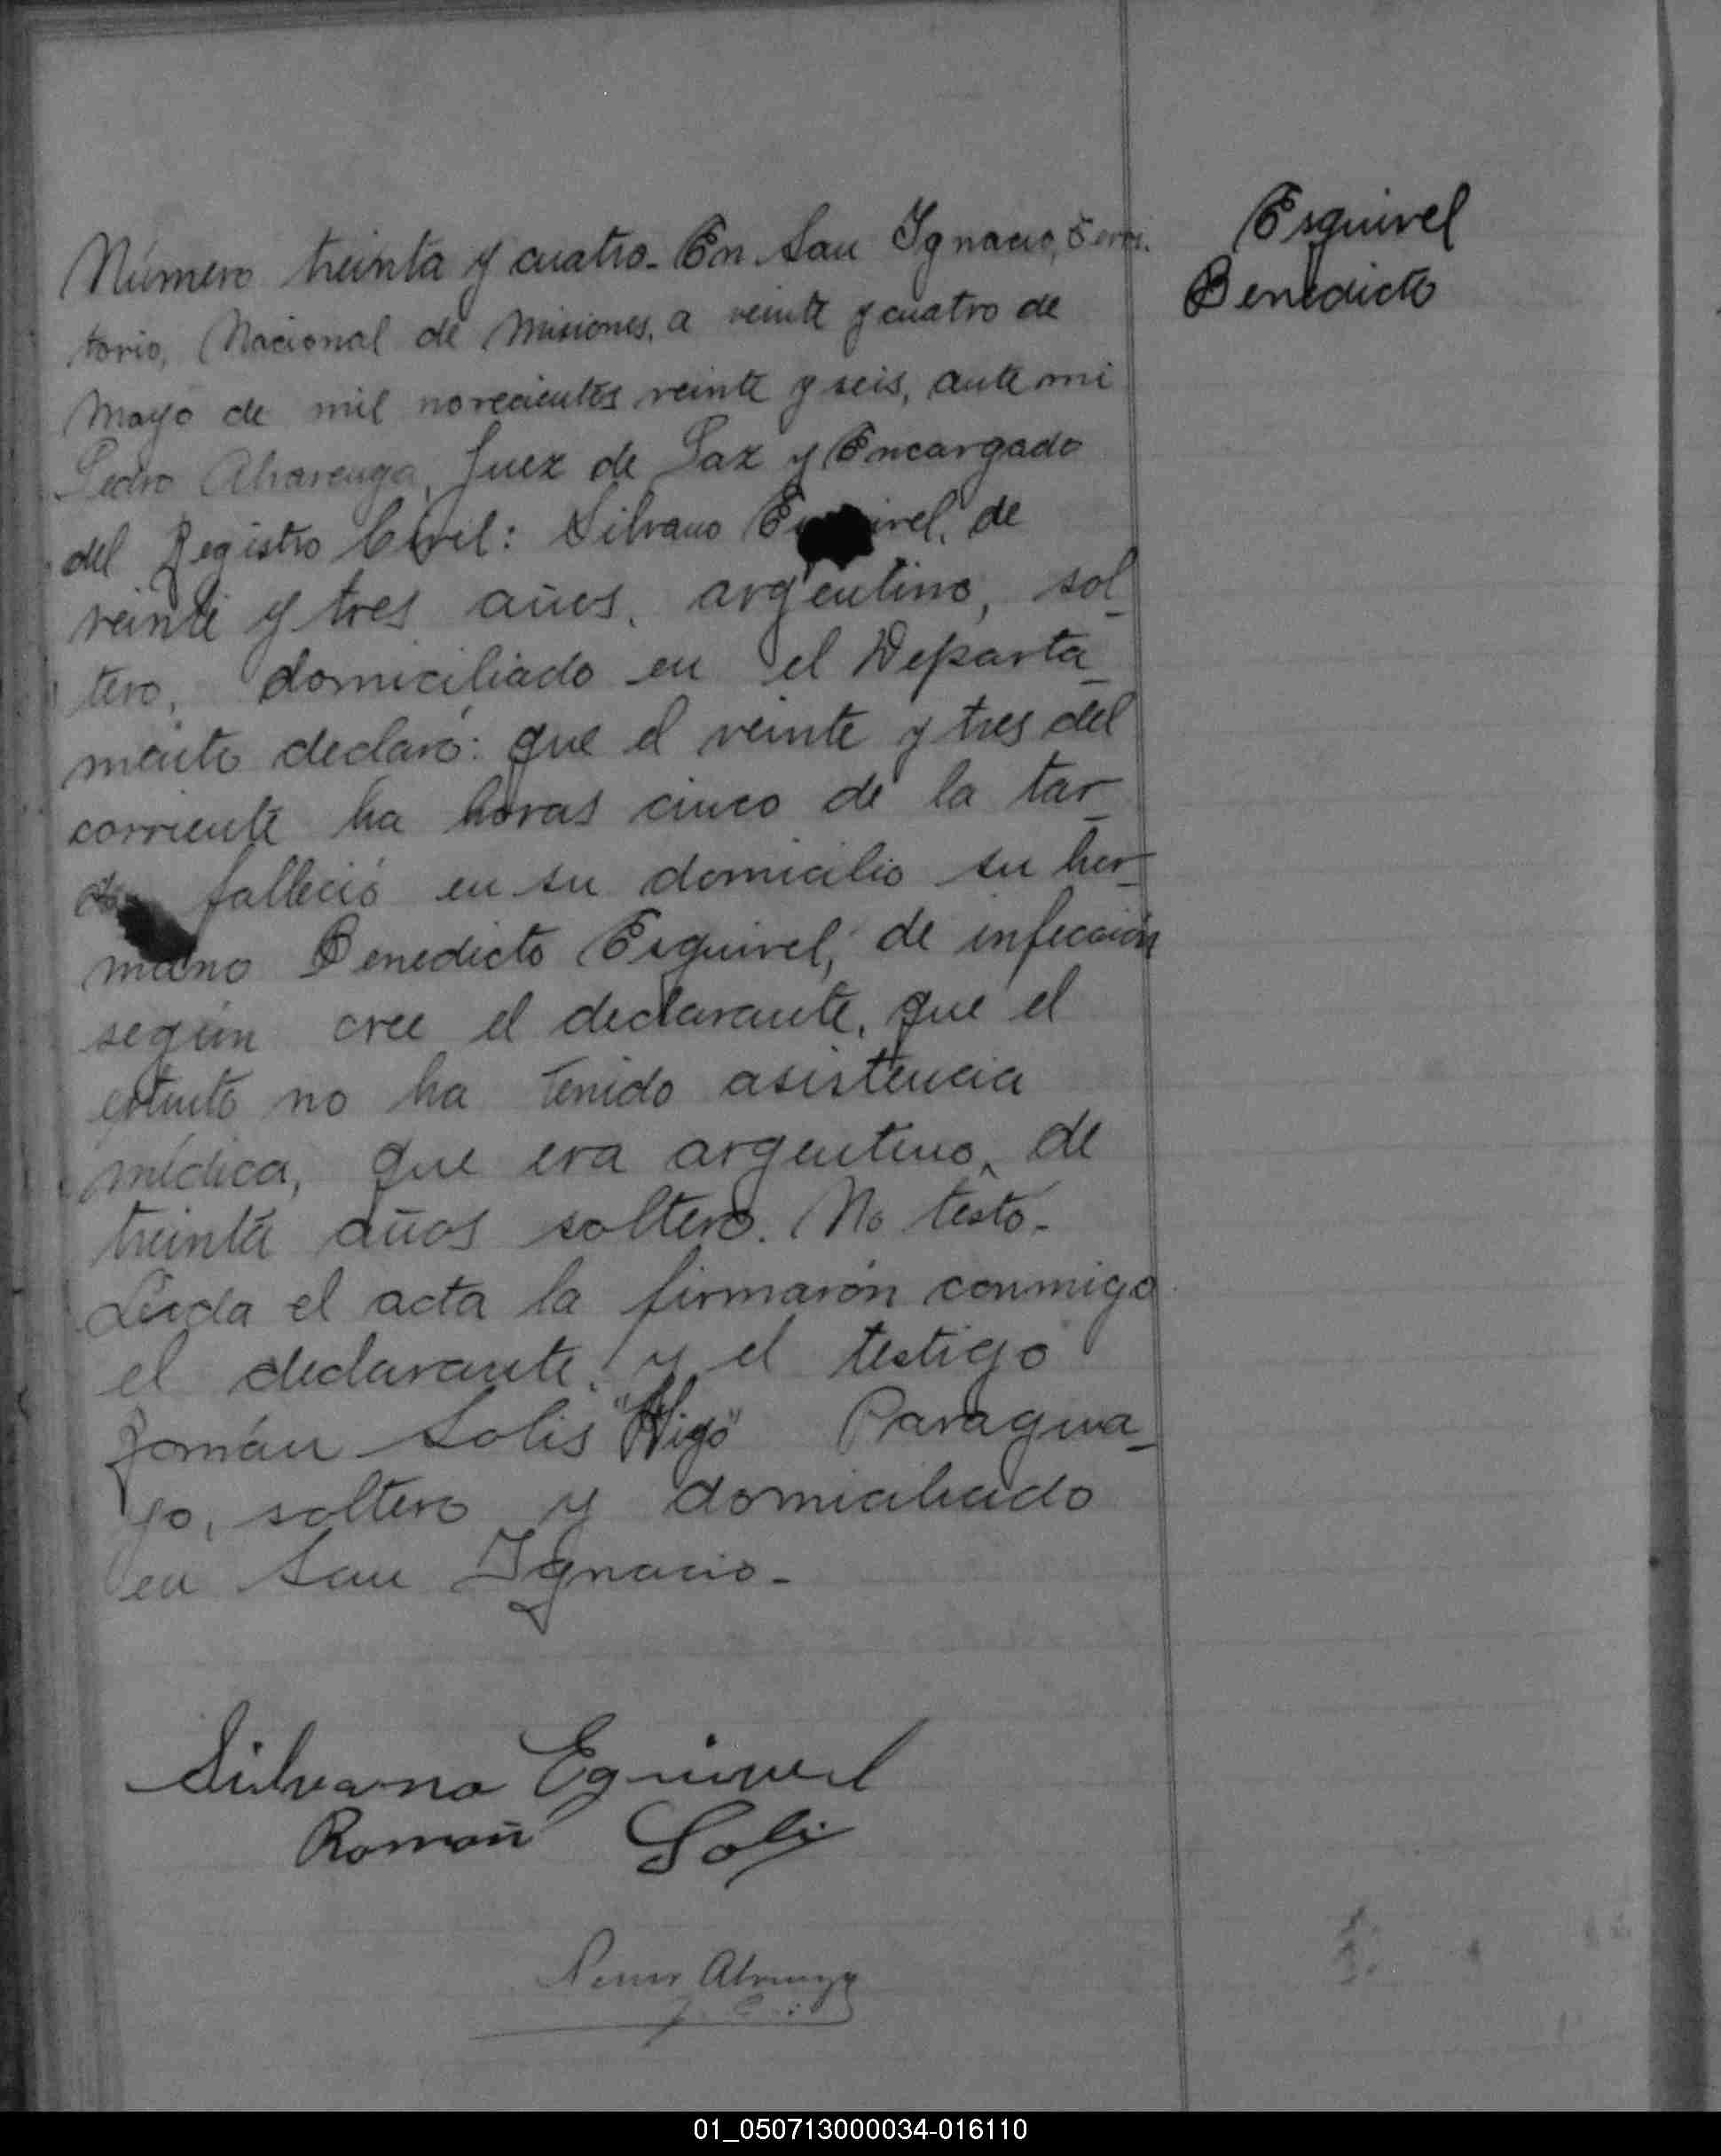 Número treinta y cuatro. En San Ignacio, Terri-
torio, Nacional de Misiones, a veinte y cuatro de
Mayo de mil novecientos veinte y seis, ante mi
Pedro Alvarenga, Juez de Paz y Encargado
del Registro Civil: Silvano de
veinte y tres años, argentino, sol-
tero, domiciliado en el Departa-
mento declaró: que el veinte y tres del
corriente ha horas cinco de la tar-
de falleció en su domicilio su her-
mano Benedicto Esquivel, de infección
según cree el declarante, que el
extinto no ha tenido asistencia
médica, que era argentino, de
treinta años soltero. No testó.
Leida el acta la firmarón conmigo
el declarante y el testigo
Román Solis Paragua-
yo, soltero y domiciliado
en San Ignacio.
Esquivel
Benedicto
Silvano Equivel
Román Solis
Alvarenga
01_050713000034-016110